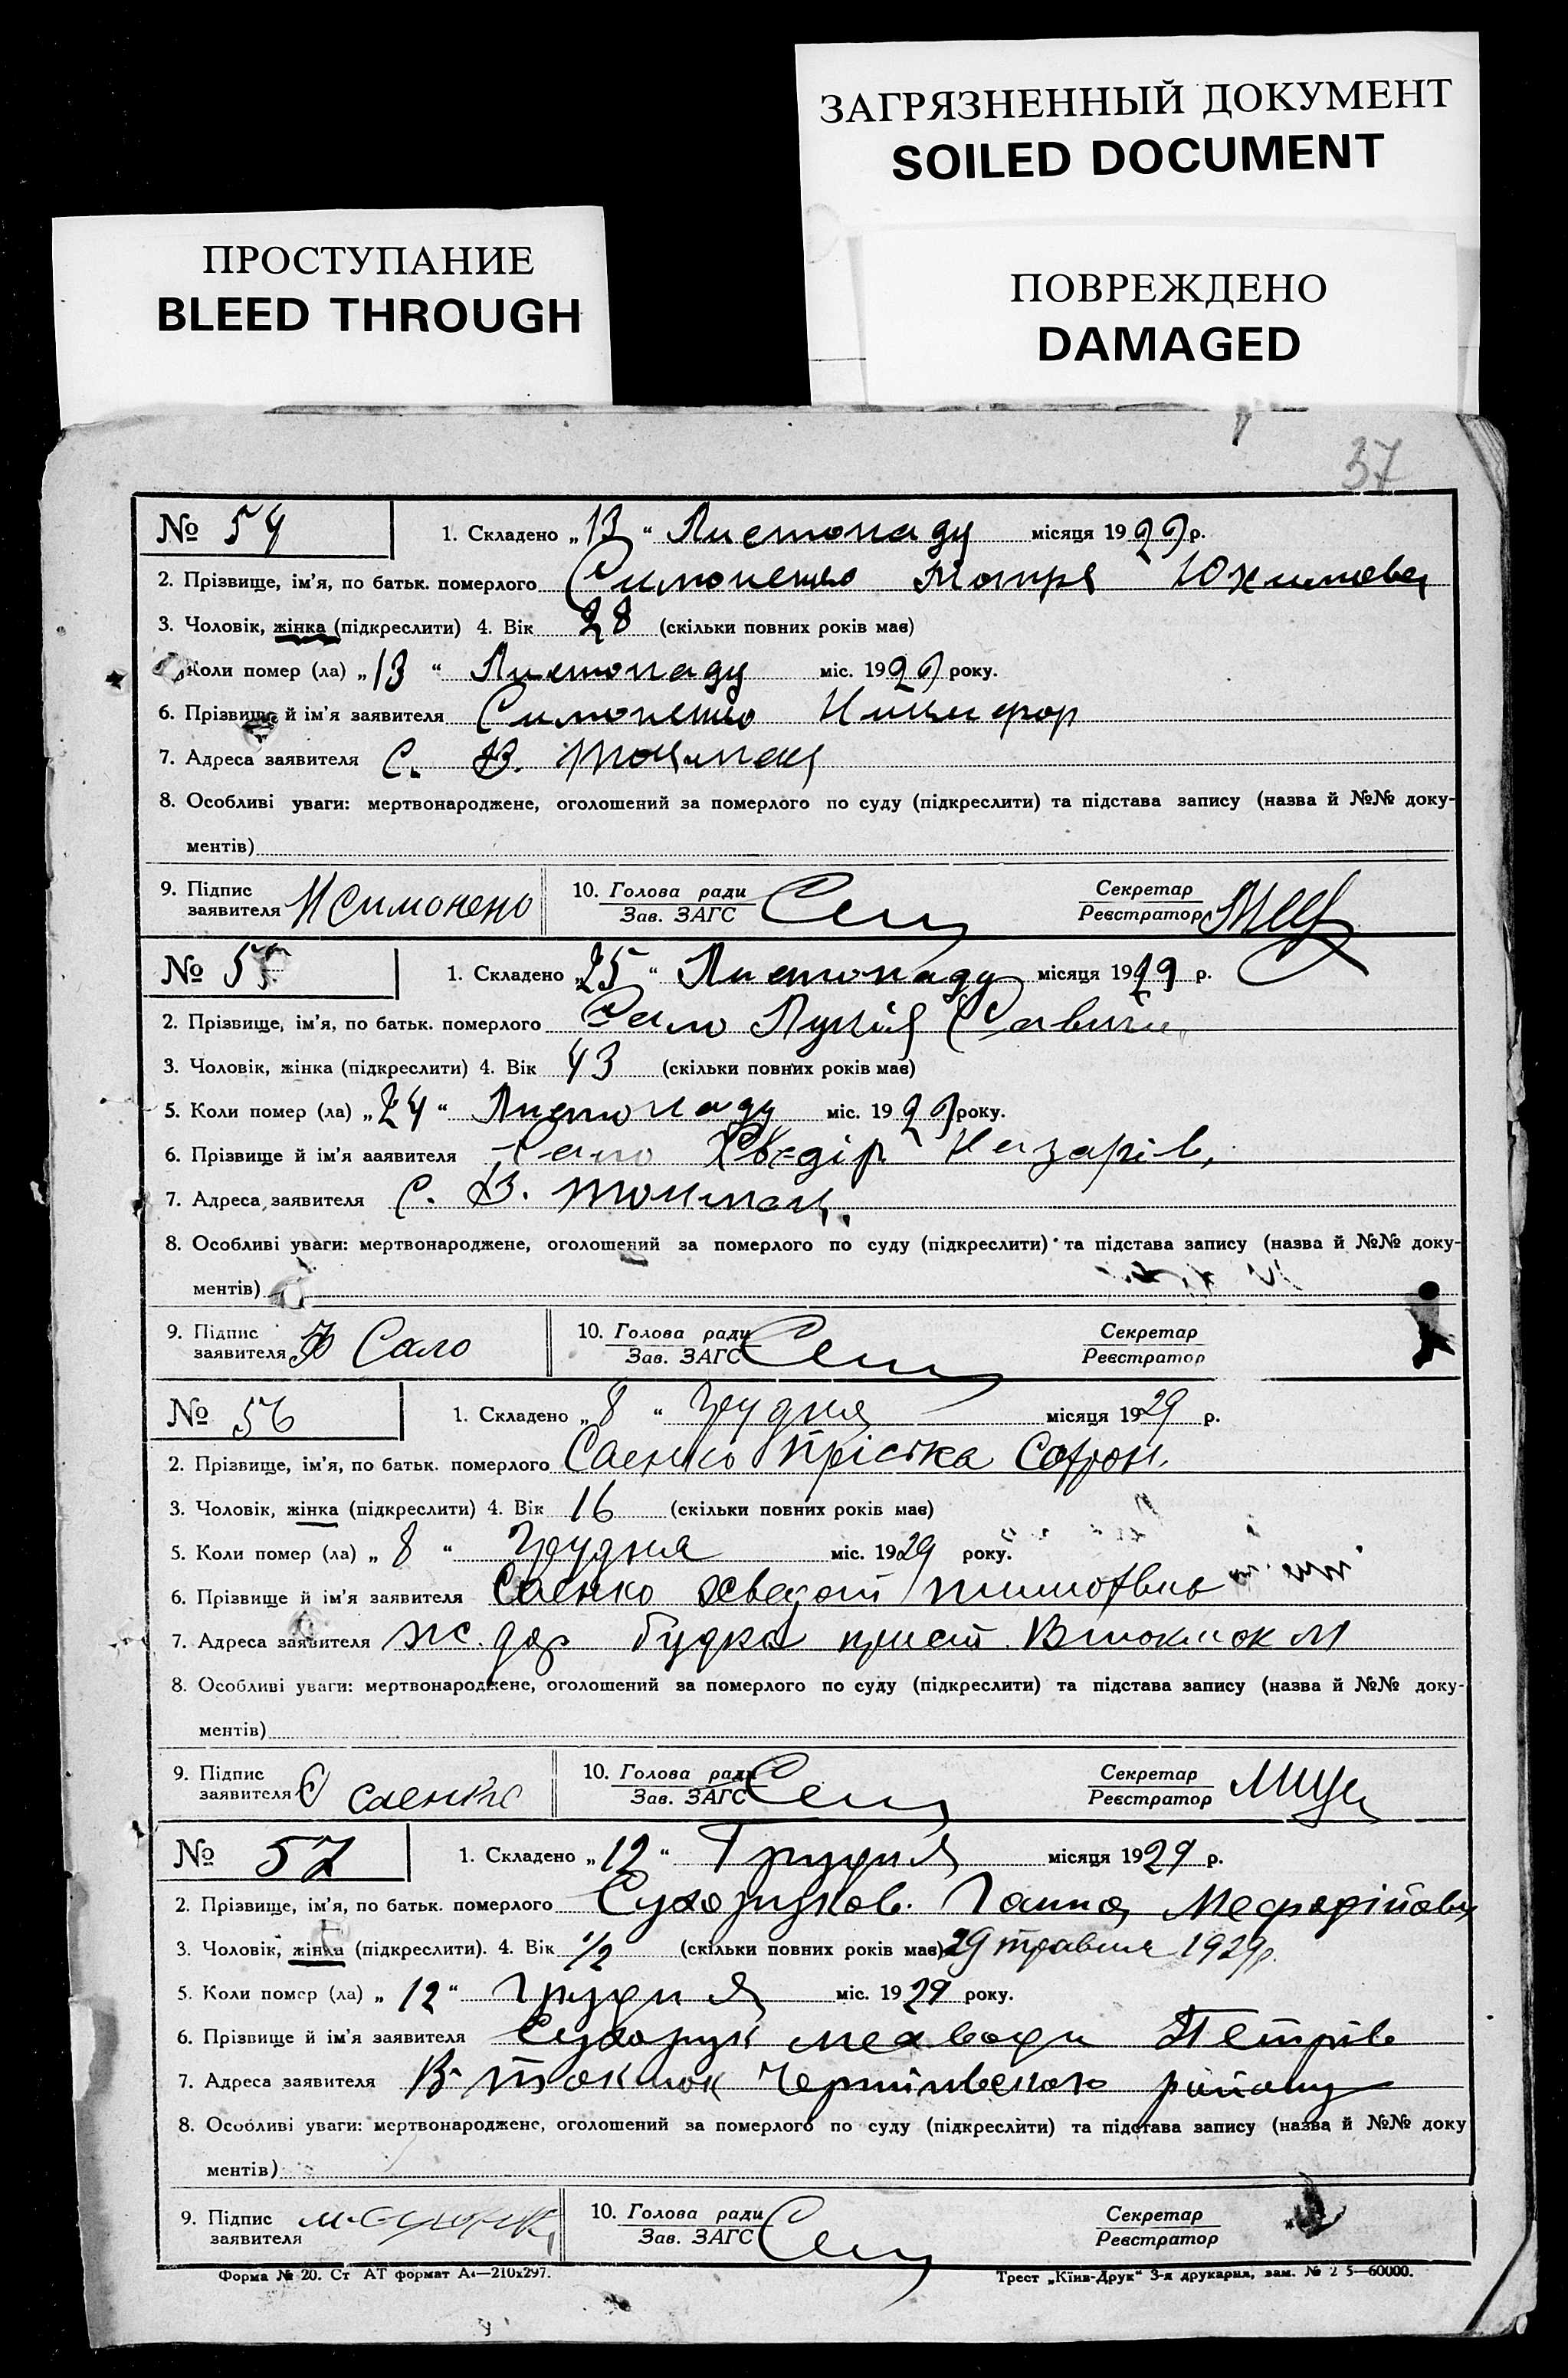 ЗАГРЯЗНЕННЫЙ ДОКУМЕНТ
SOILED DOCUMENT
ПРОСТУПАНИЕ
BLEED THROUGH
ПОВРЕЖДЕНО
DAMAGED
37
№ 54 1. Складено „13“ Листопаду місяця 1929 р.
2. Прізвище, ім'я, по батьк. померлого Симоненко Мотря Юхимова
3. Чоловік, жінка (підкреслити) 4. Вік 28 (скільки повних років має)
Коли помер (ла) „13“ Листопаду міс. 1929 року.
6. Прізвище й ім'я заявителя Симоненко Никифор
7. Адреса заявителя С. В. Токмак
8. Особливі уваги: мертвонароджене, оголошений за померлого по суду (підкреслити) та підстава запису (назва й №№ доку-
ментів)
9. Підпис заявителя Н Симонено 10. Голова ради Зав. ЗАГС Секретар Реєстратор
№ 55 1. Складено „25“ Листопаду місяця 1929 р.
2. Прізвище, ім'я, по батьк. померлого Сало Лукія
3. Чоловік, жінка (підкреслити) 4. Вік 43 (скільки повних років має)
5. Коли помер (ла) „24“ Листопаду міс. 1929 року.
6. Прізвище й ім'я заявителя Сало Хведір Назарів,
7. Адреса заявителя С. В. Токмак.
8. Особливі уваги: мертвонароджене, оголошений за померлого по суду (підкреслити) та підстава запису (назва й №№ доку-
ментів)
9. Підпис заявителя Ф Сало 10. Голова ради Зав. ЗАГС Секретар Реєстратор
№ 56 1. Складено „8“ Грудня місяця 1929 р.
2. Прізвище, ім'я, по батьк. померлого Саенко Пріська Софрон.
3. Чоловік, жінка (підкреслити) 4. Вік 16 (скільки повних років має)
5. Коли помер (ла) „8“ Грудня міс. 1929 року.
6. Прізвище й ім'я заявителя Саенко
7. Адреса заявителя жс. дор будка
8. Особливі уваги: мертвонароджене, оголошений за померлого по суду (підкреслити) та підстава запису (назва й №№ доку-
ментів)
9. Підпис заявителя Є саенко 10. Голова ради Зав. ЗАГС Секретар Реєстратор
№ 57 1. Складено „12“ Грудня місяця 1929 р.
2. Прізвище, ім'я, по батьк. померлого Сухоруков. Ганна Мефодійовн
3. Чоловік, жінка (підкреслити). 4. Вік 1/2 (скільки повних років має) 29 травня 1929р.
5. Коли помер (ла) „12“ Грудня міс. 1929 року.
6. Прізвище й ім'я заявителя Сухорук Мехводи Петрів
7. Адреса заявителя В-Токмок Чернігівского району
8. Особливі уваги: мертвонароджене, оголошений за померлого по суду (підкреслити) та підстава запису (назва й №№ доку
ментів)
9. Підпис заявителя 10. Голова ради Зав. ЗАГС Секретар Реєстратор
Форма № 20. Ст АТ формат А4—210х297. Трест „Київ-Друк“ 3-я друкарня, зам. № 2 5—60000.